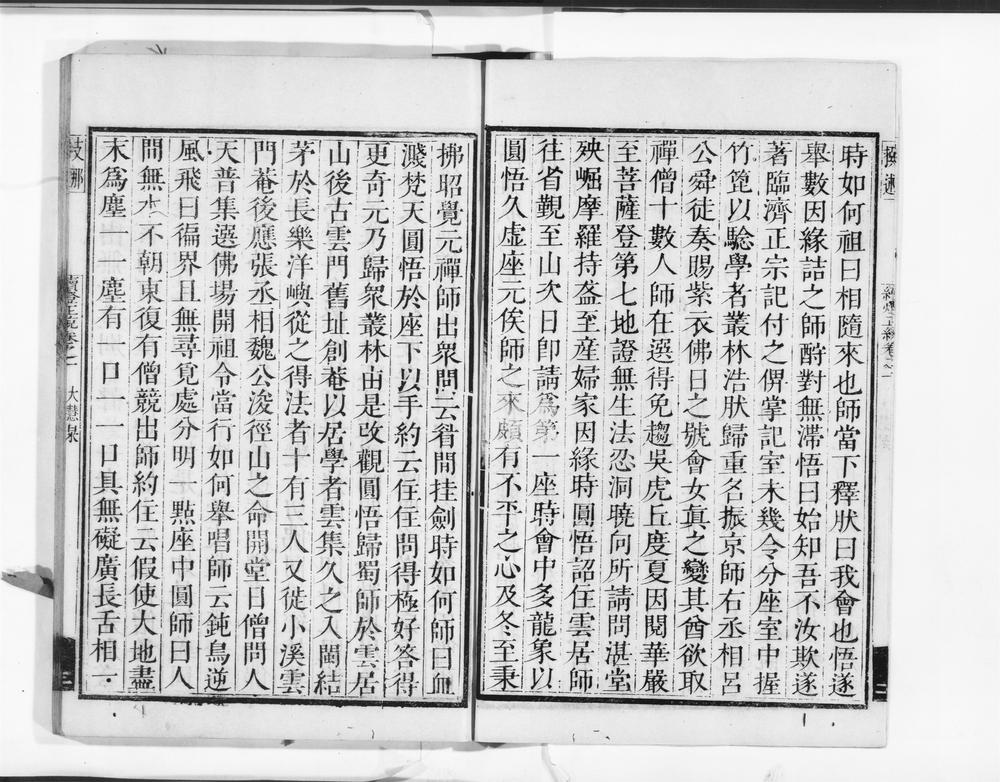 時如何祖曰相隨來也師當下釋狀曰我會也悟遂
舉數因緣詰之師酧對無滯悟曰始知吾不汝欺遂
著臨濟正宗記付之俾掌記室未幾令分座室中握
竹篦以驗學者叢林浩狀歸重名振京師右丞相呂
公舜徒奏賜紫衣佛日之號會女真之變其酋欲取
禪僧十數人師在選得免趨吳虎丘度夏因閱華嚴
至菩薩登第七地證無生法忍洞曉向所請問湛堂
殃崛摩羅持盋至産婦家因緣時圓悟詔住雲居師
往省覲至山次日卽請爲第一座時會中多龍象以
圓悟久虛座元俟師之來頗有不平之心及冬至秉
拂昭覺元禪師出衆問云眉閒挂劍時如何師曰血
濺梵天圓悟於座下以手約云住住問得極好答得
更奇元乃歸衆叢林由是改觀圓悟歸蜀師於雲居
山後古雲門舊址創菴以居學者雲集久之入閩結
茅於長樂洋嶼從之得法者十有三人又徙小溪雲
門菴後應張丞相魏公浚徑山之命開堂日僧問人
天普集選佛場開祖令當行如何舉唱師云鈍鳥逆
風飛曰徧界且無尋覓處分明一點座中圓師曰人
閒無水不朝東復有僧競出師約住云假使大地盡
末爲塵一一塵有一口一一口具無礙廣長舌相一
大慧杲